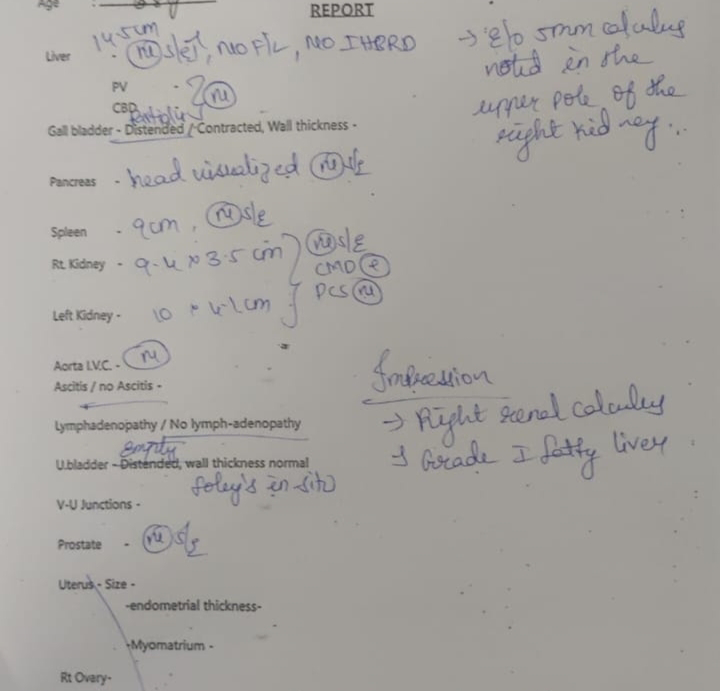 Age :
REPORT
Liver 14.5cm - (N) s/e↑, NO F/L, NO IHBRD
PV -
CBD (N)
Partially
Gall bladder - Distended / Contracted, Wall thickness -
Pancreas - head visualized (N) s/e
Spleen - 9cm, (N) s/e
Rt. Kidney - 9.4 x 3.5 cm (N) s/E
CMD (+)
PCS (N)
Left Kidney - 10 x 4.1cm
Aorta I.V.C. - (N)
Ascitis / no Ascitis -
Lymphadenopathy / No lymph-adenopathy
empty
U.bladder - Distended, wall thickness normal
foley's in situ
V-U Junctions -
Prostate - (N) s/e
Uterus - Size -
-endometrial thickness-
-Myomatrium -
Rt Ovary-
→ e/o 5mm calculus
noted in the
upper pole of the
right kidney..
Impression
→ Right renal calculus
Grade I fatty liver